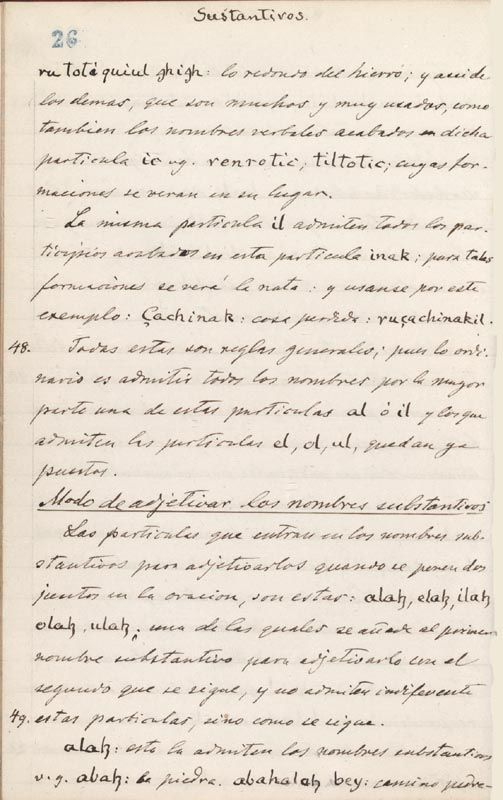 Sustantivos.
26
ru totó quiul ghigh: lo redondo del hierro; y assi de
los demas, que son muchos y muy usados, como
tambien los nombres verbales acabados en dicha
particula ic vg. renrotic, tiltotic; cuyas for-
maciones se veran en su lugar.
La misma particula il admiten todos los par-
ticipios acabados en esta particula inak; para tales
formaciones se verá la nota: y usanse por este
exemplo: Çachinak: cosa perdida: ruçachinakil.
48. Todas estas son reglas generales; pues lo ordi-
nario es admitir todos los nombres por la mayor
parte una de estas particulas al ó il y los que
admiten las particulas el, ol, ul, quedan ya
puestos.
Modo de adjetivar los nombres substantivos
Las particulas que entran en los nombres sub-
stantivos para adjetivarlos quando se ponen dos
juntos en la oracion, son estas: alaꜩ, elaꜩ, ilaꜩ
olaꜩ, ulaꜩ; una de las quales se añade al primer
nombre substantivo para adjetivarlo con el
segundo que se sigue, y no admiten indiferente
49. estas particulas, sino como se sigue.
alaꜩ: esta la admiten los nombres substantivos
v.g. abaꜩ: la piedra. abahalaꜩ bey: camino pedre-